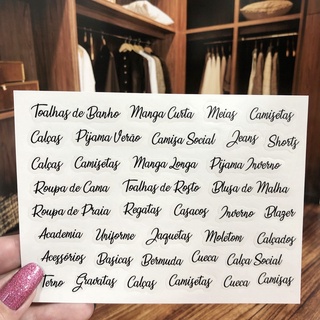 Toalhas de Banho Manga Curta Meias Camisetas
Calças Pijama Verão Camisa Social Jeans Shorts
Calças Camisetas Manga Longa Pijama Inverno
Roupa de Cama Toalhas de Rosto Blusa de Malha
Roupa de Praia Regatas Casacos Inverno Blazer
Academia Uniforme Jaquetas Moletom Calçados
Acessórios Basicas Bermuda Cueca Calça Social
Terno Gravatas Calças Camisetas Cueca Camisas